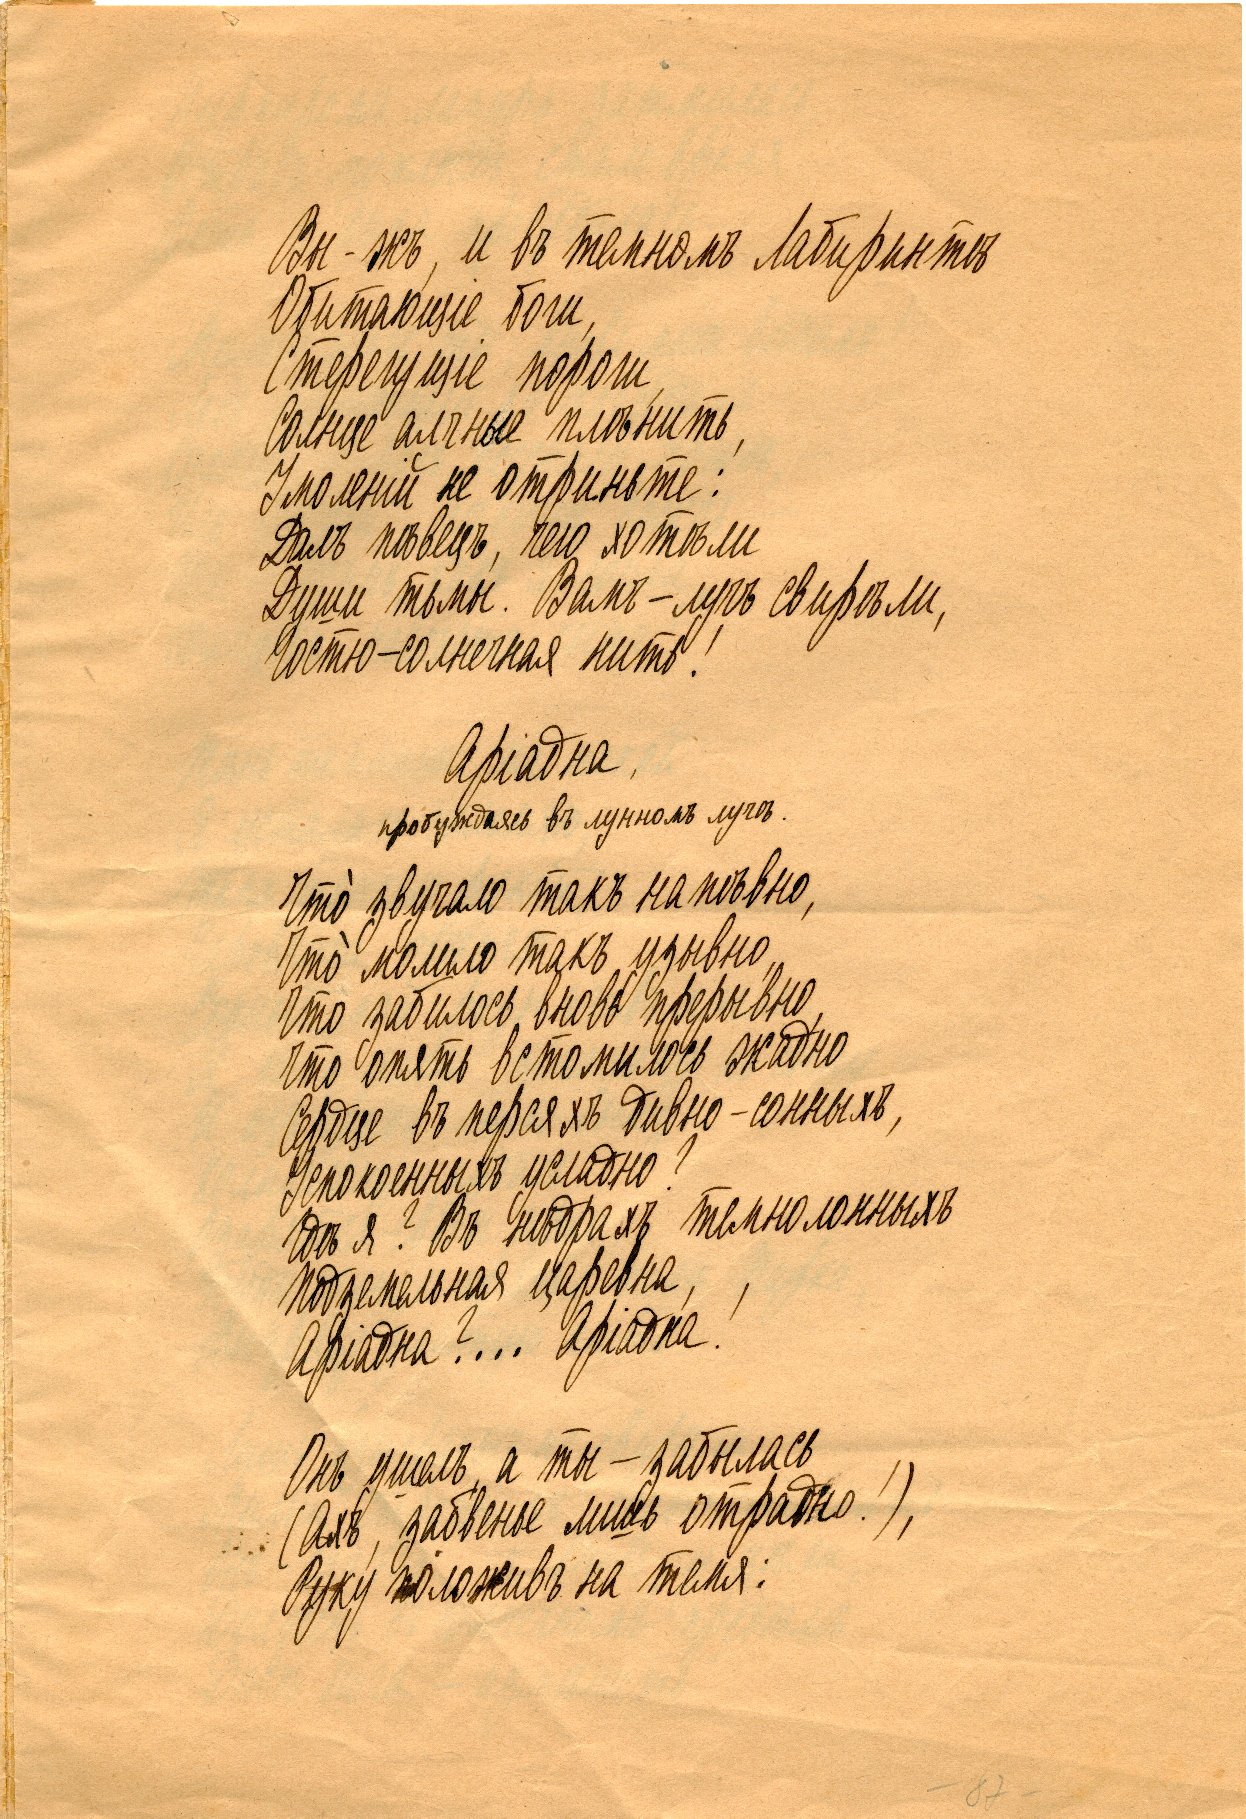 Вы-жъ, и въ темномъ Лабиринтѣ
Обитающіе боги,
Стерегущіе пороги,
Солнце алчные плѣнить,
Умоленій не отриньте:
Далъ пѣвецъ, чего хотѣли
Души тьмы. Вамъ – лучъ свирѣли,
Гостю – солнечная нить!
Аріадна,
пробуждаясь въ лунномъ лучѣ.
Что̀ звучало такъ напѣвно,
Что̀ молило такъ узывно,
Что забилось вновь прерывно,
Что опять встомилось жадно
Сердце въ персяхъ дивно-сонныхъ,
Успокоенныхъ усладно?
Гдѣ я? Въ нѣдрахъ темнолонныхъ
Подземельная царевна,
Аріадна?.... Аріадна!
Онъ ушелъ, а ты – забылась
(Ахъ, забвенье лишь отрадно!),
Руку положивъ на темя:
- 87 -